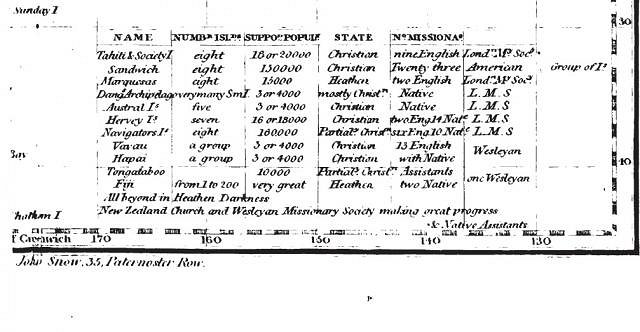 Sunday I
30
NAME NUMBR ISLDS SUPPOD POPULN STATE NO MISSIONAS
Tahiti & Society I eight 18 or 20000 Christian nine English Londn My Socy
Sandwich eight 150000 Christian Twenty three American Group of Is
Marquesas eight 15000 Heathen two English Londn My Socy
Dang Archipelago very many Sml 3 or 4000 mostly Christn Native L. M. S
Austral Is five 3 or 4000 Christian Native L. M. S
Hervey Is seven 16 or 18000 Christian two Eng 14 Nate L. M. S
Navigators Is eight 160,000 Partialy Christn six Eng 10 Nate L. M. S
Vavau a group 3 or 4000 Christian 13 English
Wesleyan
Hapai a group 3 or 4000 Christian with Native
Tongataboo 10000 Partialy Christn Assistants
one Wesleyan
40
Fiji from 1 to 200 very great Heathen two Native
All beyond in Heathen Darkness
New Zealand Church and Wesleyan Missionary Society making great progress
hatham I
* & Native Assistants
f Greenwich 170 160 150 140 130
John Snow, 35, Paternoster Row.